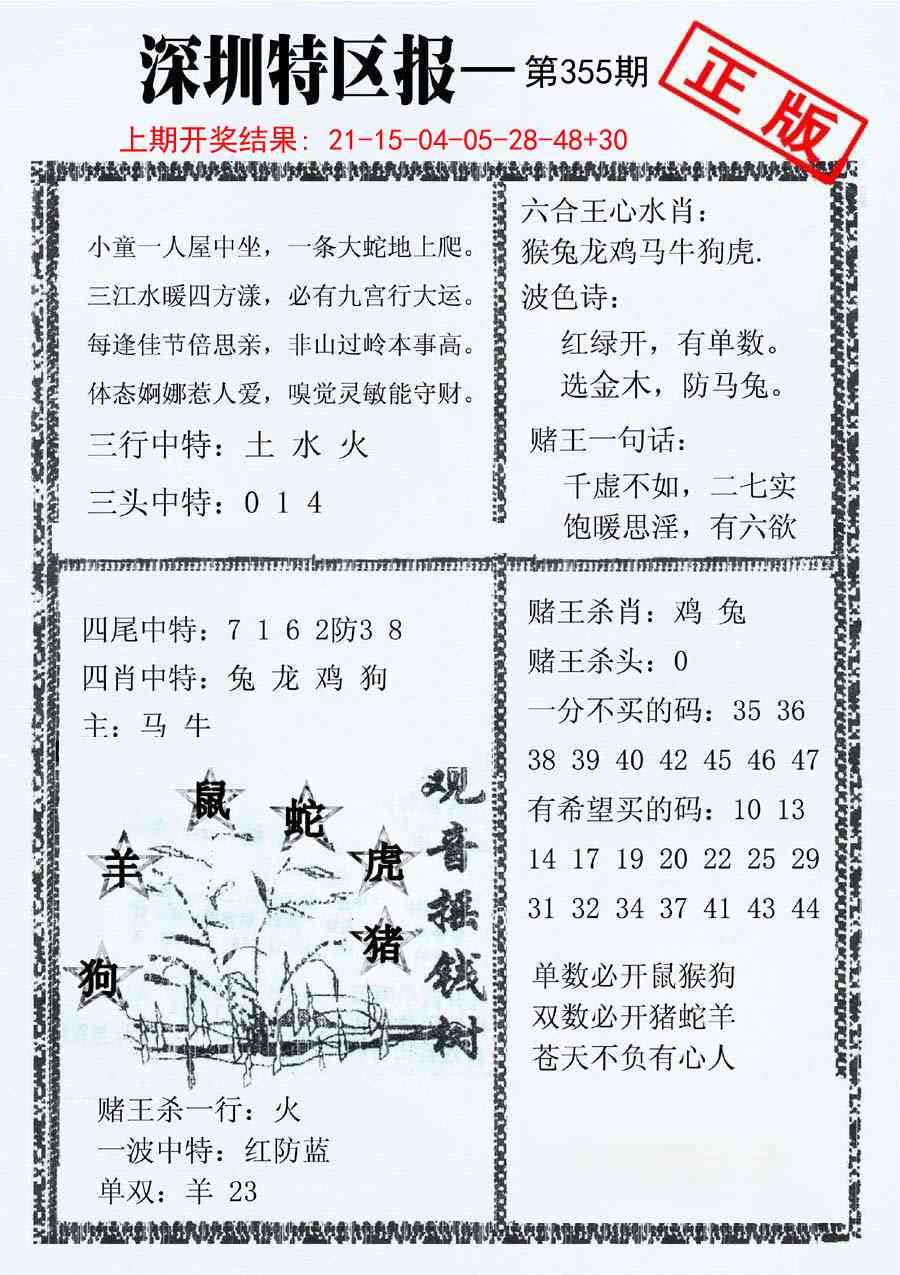 深圳特区报—第355期
正版
上期开奖结果: 21-15-04-05-28-48+30
小童一人屋中坐，一条大蛇地上爬。
三江水暖四方漾，必有九宫行大运。
每逢佳节倍思亲，非山过岭本事高。
体态婀娜惹人爱，嗅觉灵敏能守财。
三行中特: 土 水 火
三头中特:0 1 4
六合王心水肖:
猴兔龙鸡马牛狗虎.
波色诗:
红绿开，有单数。
选金木，防马兔。
赌王一句话:
千虚不如，二七实
饱暖思淫，有六欲
四尾中特:7 1 6 2防3 8
四肖中特:兔 龙 鸡 狗
主: 马 牛
鼠
蛇
羊
虎
猪
狗
观音摇钱树
赌王杀一行: 火
一波中特:红防蓝
单双:羊 23
赌王杀肖: 鸡 兔
赌王杀头:0
一分不买的码: 35 36
38 39 40 42 45 46 47
有希望买的码:10 13
14 17 19 20 22 25 29
31 32 34 37 41 43 44
单数必开鼠猴狗
双数必开猪蛇羊
苍天不负有心人